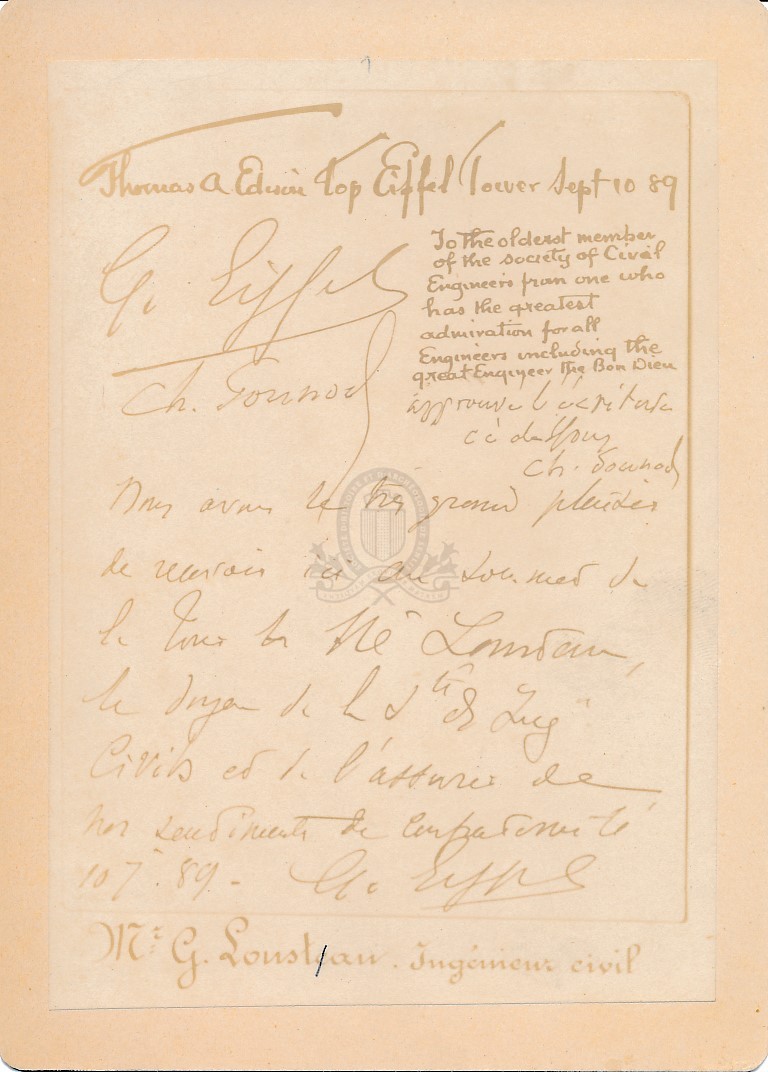 Thomas A Edison Top Eiffel Tower Sept 10 89
G. Eiffel
To the olderst member
of the society of Civil
Engineers from one who
has the greatest
admiration for all
Engineers including the
great Engineer The Bon Dieu
Ch. Gounod
approuve l'écriture
ci dessous
Ch. Gounod
Nous avons le très grand plaisir
de recevoir ici au sommet de
la Tour
le doyen de la Sté des Ing
Civils et de l'assurer de
nos sentiments de confraternité
10 7. 89. G. Eiffel
Mr. G. Lousteau. Ingénieur civil